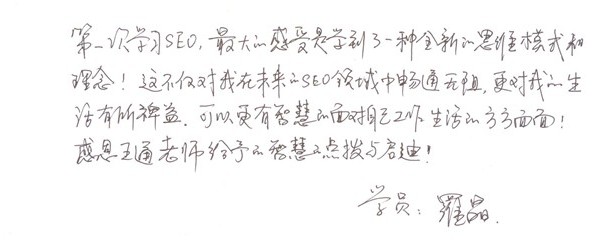 第一次学习SEO,最大的感受是学到了一种全新的思维模式和
理念!这不仅对我在未来的SEO领域中畅通无阻,更对我的生
活有所裨益.可以更有智慧的面对自己工作生活的方方面面!
感恩王通老师给予的智慧之点拨与启迪!
学员:羅晶.